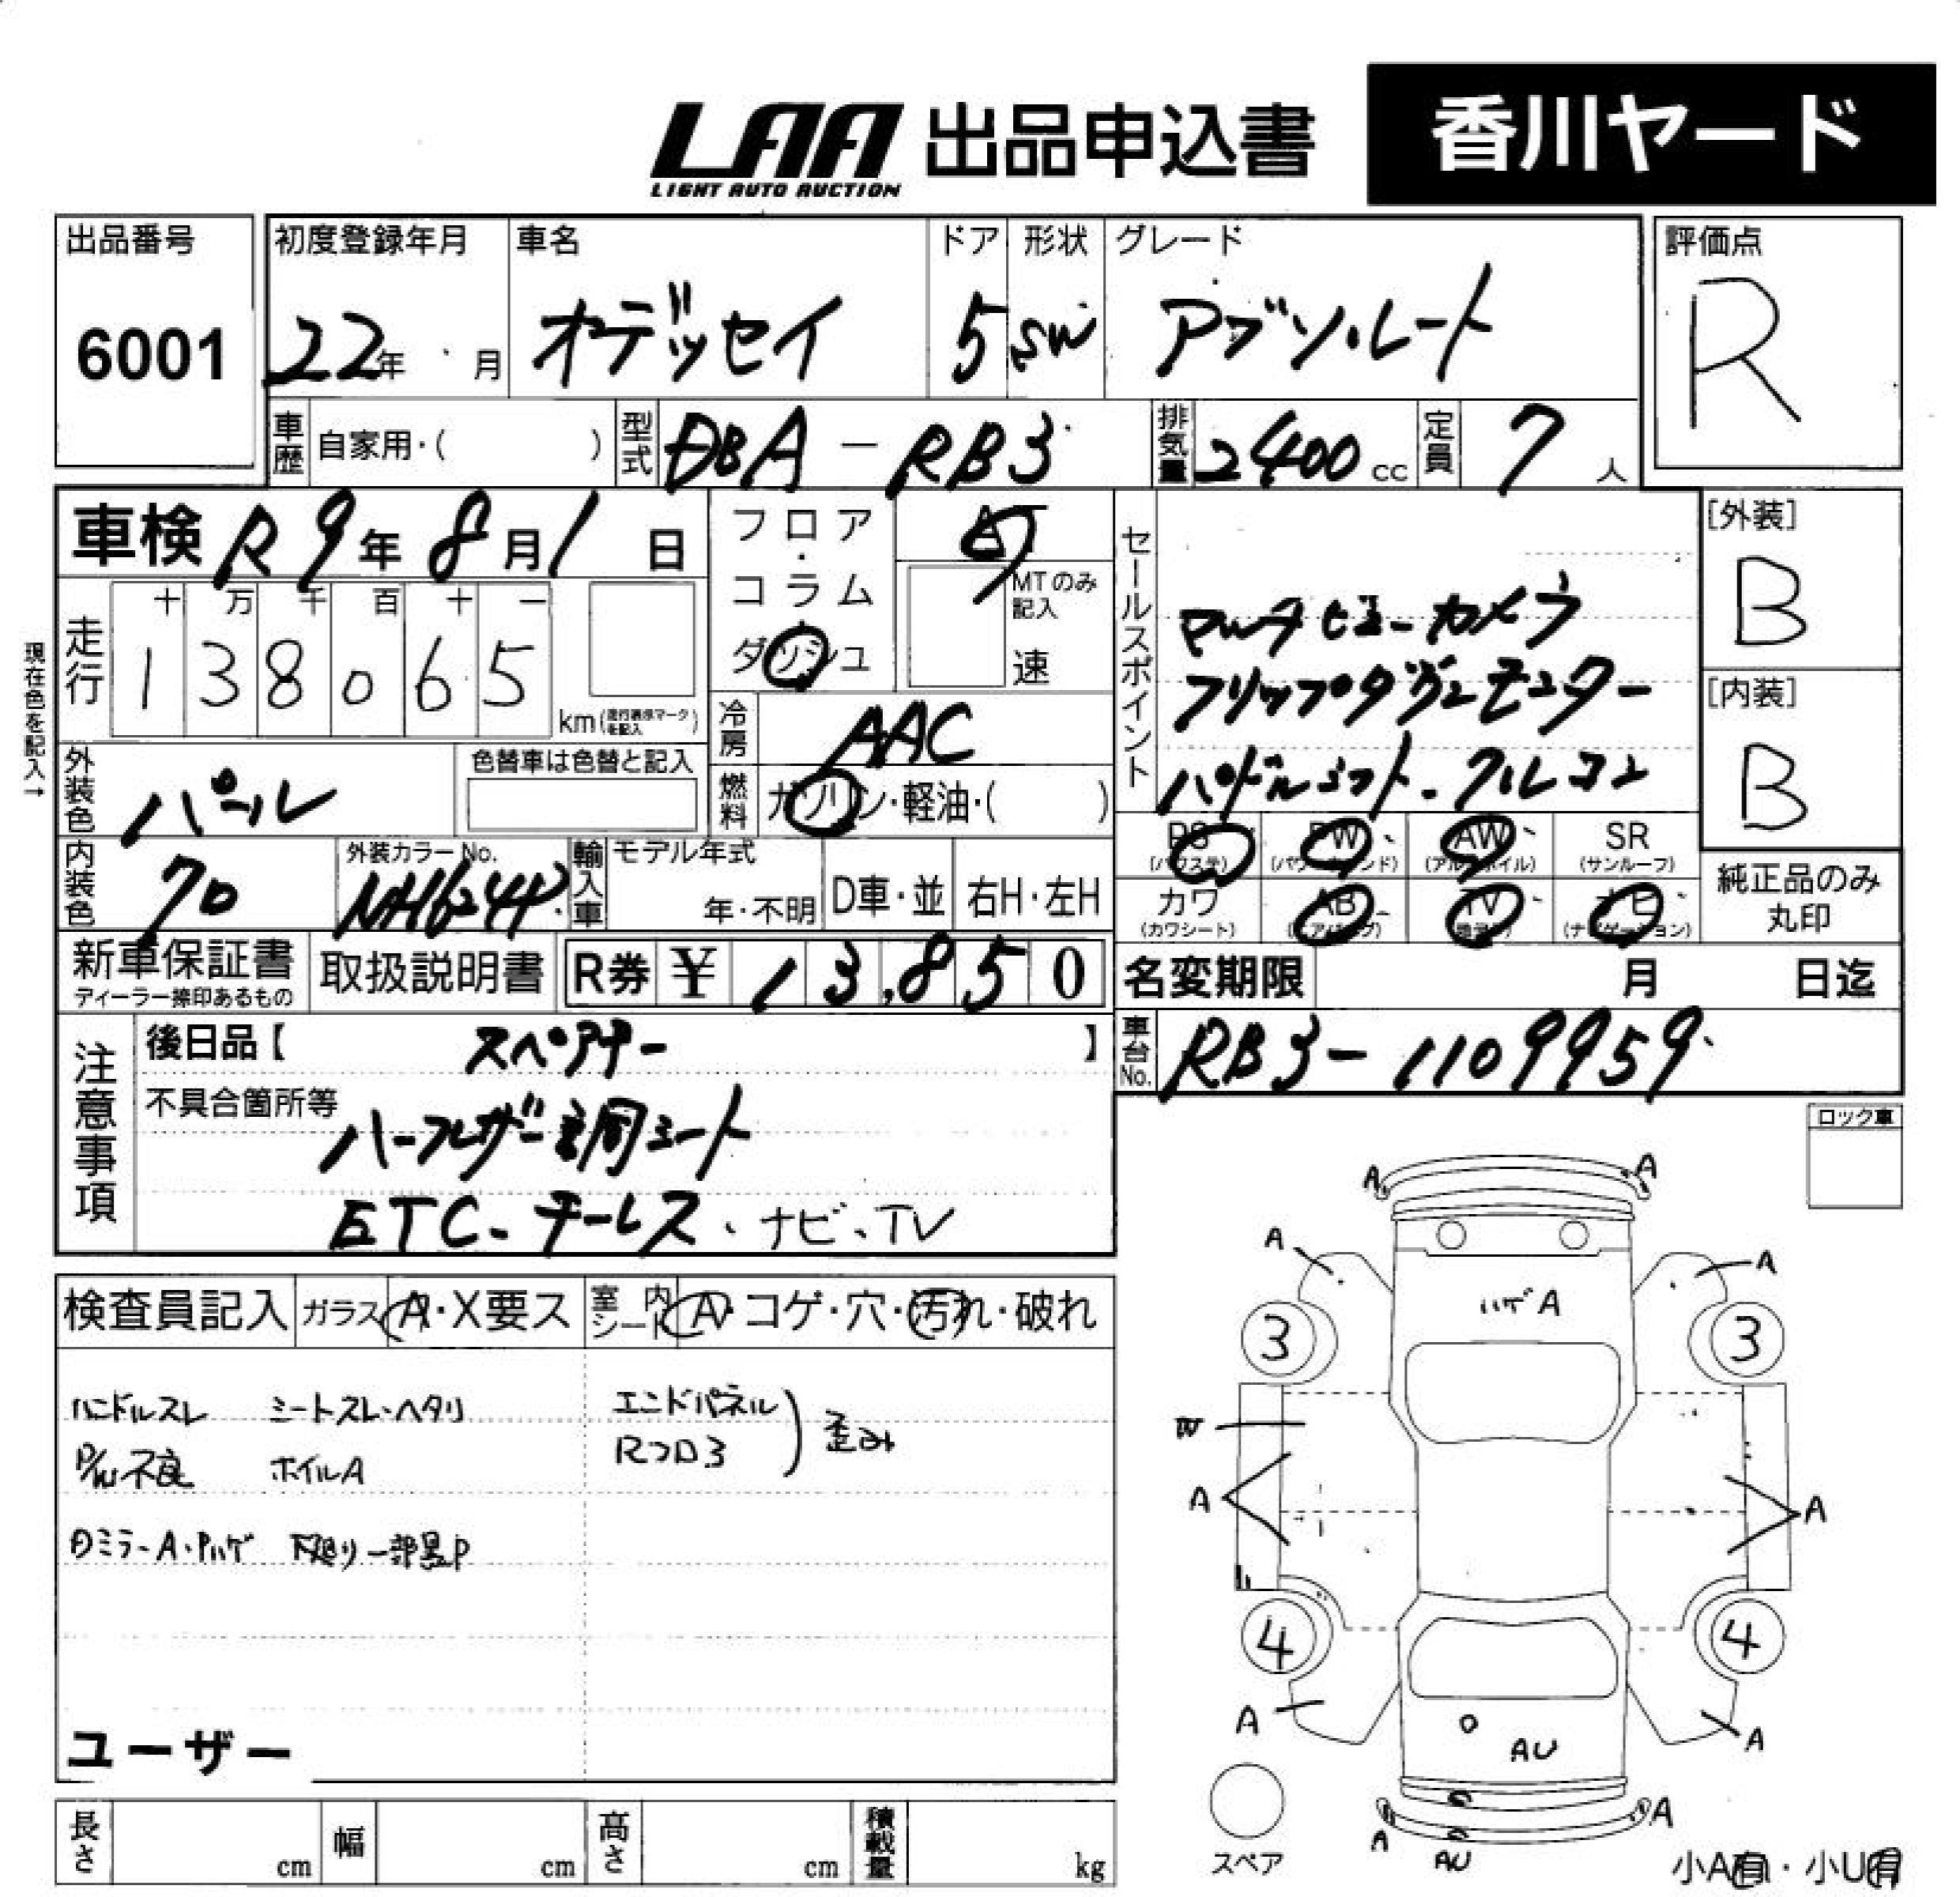 LAA 出品申込書 香川ヤード
LIGHT AUTO AUCTION
出品番号 初度登録年月 車名 ドア 形状 グレード 評価点
6001 22年 月 オデッセイ 5 SW アブソルート R
車歴 自家用・( ) 型式 DBA-RB3 排気量 2400cc 定員 7人
車検 R9年8月1日 フロア・コラム・ダッシュ AT
MTのみ記入 速
現在色を記入→
走行 十 万 千 百 十 一
138065 km(走行表示マークを記入)
冷房 AAC
外装色 パール 色替車は色替と記入
燃料 ガソリン・軽油・( )
内装色 クロ 外装カラーNo. NH624P 輸入車 モデル年式 年・不明 D車・並 右H・左H
新車保証書 ディーラー捺印あるもの 取扱説明書 R券 ¥ 13,850
セールスポイント
マルチビューカメラ
フリップダウンモニター
パドルシフト、クルコン
[外装] B
[内装] B
PS(パワステ) PW(パワーウィンド) AW(アルミホイル) SR(サンルーフ)
カワ(カワシート) AB(エアバッグ) TV(地デジ) ナビ(ナビゲーション)
純正品のみ丸印
名変期限 月 日迄
車台No. RB3-1109959
注意事項
後日品【 スペアキー 】
不具合箇所等
ハーフレザー調シート
ETC、キーレス、ナビ、TV
ロック車
検査員記入 ガラス A・X要ス 室内シート A・コゲ・穴・汚れ・破れ
ハンドルスレ シートスレ・ヘタリ エンドパネル
不良 ホイルA Rフロ3 歪み
ミラーA・Pハゲ 下廻り一部黒P
ユーザー
長さ cm 幅 cm 高さ cm 積載量 kg
A A
A A
ハゲA
3 3
W
A A
4 4
A A
AU
A A
AU
スペア
小A有・小U有